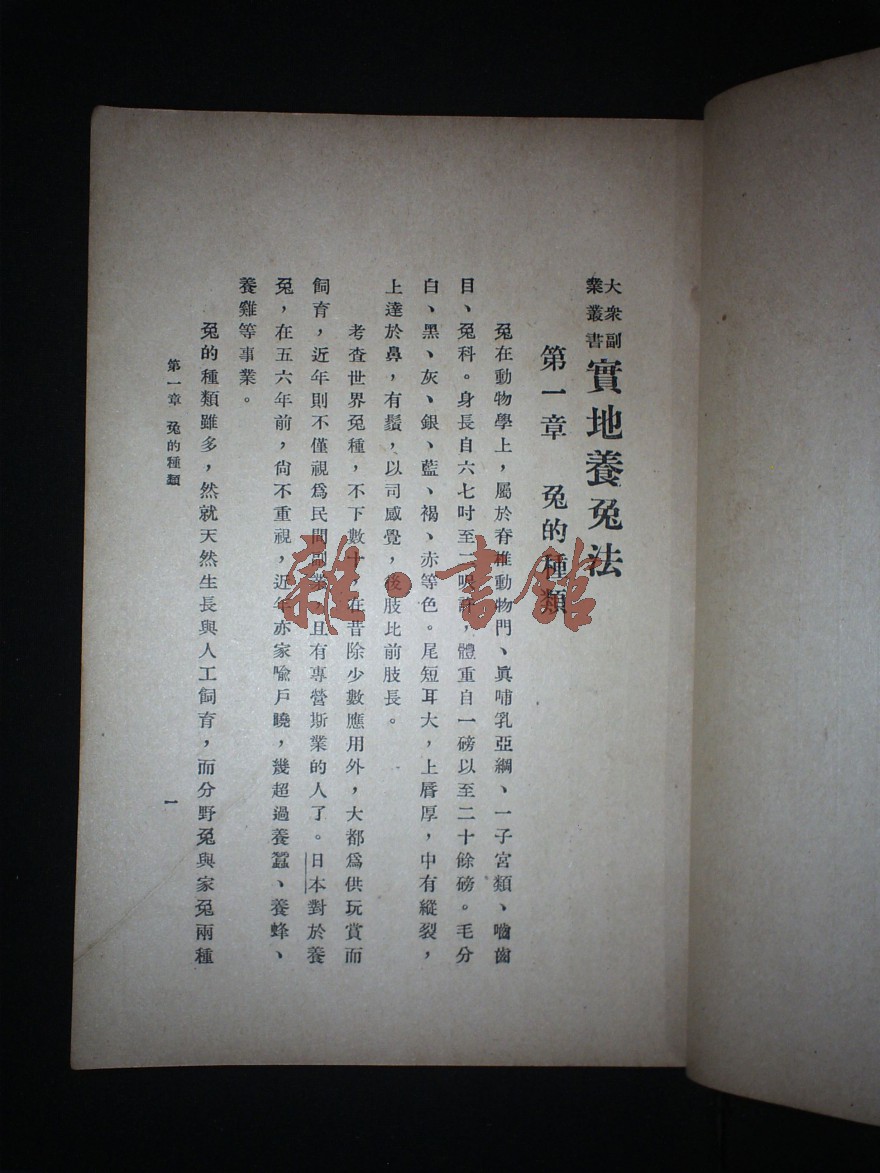 大衆副
業叢書
實地養兔法
第一章 兔的種類
兔在動物學上，屬於脊椎動物門、眞哺乳亞綱、一子宮類、嚙齒
目、兔科。身長自六七吋至二呎許，體重自一磅以至二十餘磅。毛分
白、黑、灰、銀、藍、褐、赤等色。尾短耳大，上唇厚，中有縱裂，
上達於鼻，有鬚，以司感覺，後肢比前肢長。
考查世界兔種，不下數十，在昔除少數應用外，大都爲供玩賞而
飼育，近年則不僅視爲民間副業，且有專營斯業的人了。日本對於養
兔，在五六年前，尙不重視，近年亦家喩戶曉，幾超過養蠶、養蜂、
養雞等事業。
兔的種類雖多，然就天然生長與人工飼育，而分野兔與家兔兩種
第一章 兔的種類
一
雜·書館